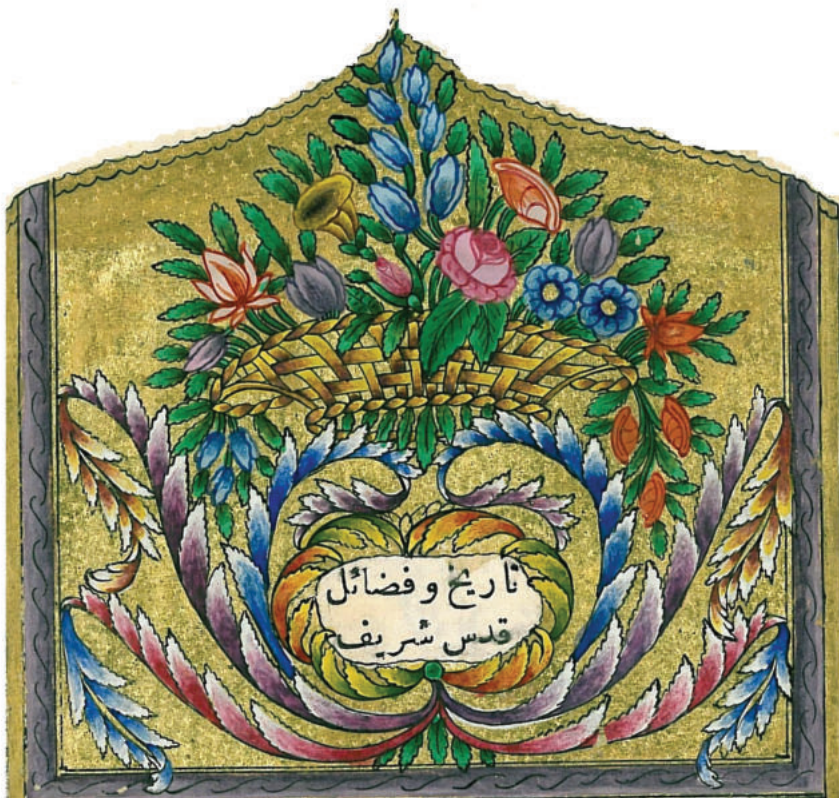 تاريخ و فضائل
قدس شريف